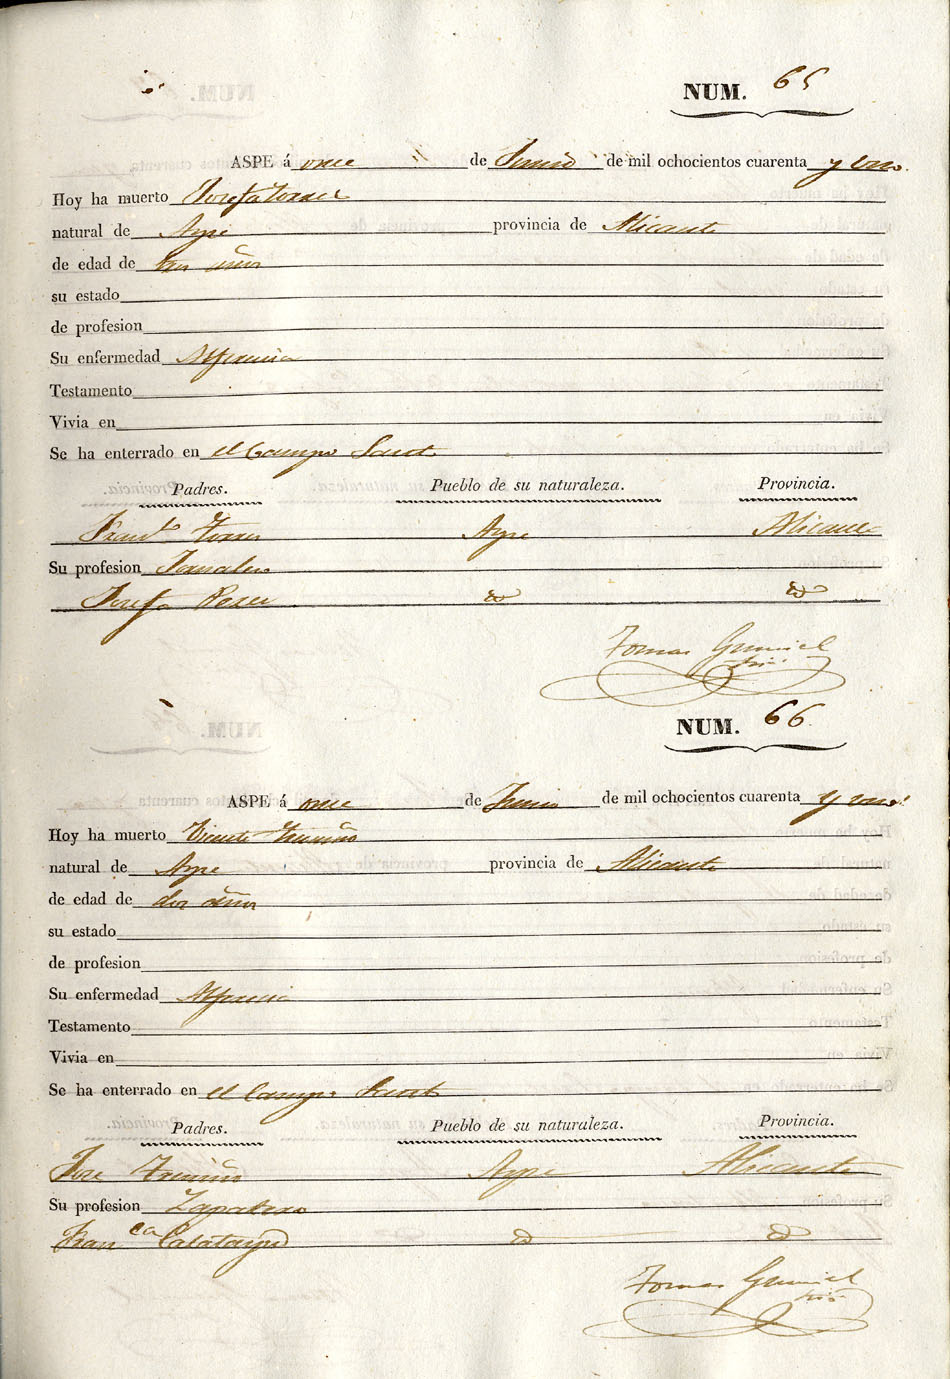 NUM. 65
ASPE á once de Junio de mil ochocientos cuarenta y uno.
Hoy ha muerto Josefa Torres
natural de Aspe provincia de Alicante
de edad de tres años
su estado
de profesion
Su enfermedad
Testamento
Vivia en
Se ha enterrado en el Campo Santo
Padres. Pueblo de su naturaleza. Provincia.
Fran.co Torres Aspe Alicante
Su profesion Jornalero
Josefa Perez id id
Tomas Gumiel
NUM. 66.
ASPE á once de Junio de mil ochocientos cuarenta y uno.
Hoy ha muerto Vicente Treviño
natural de Aspe provincia de Alicante
de edad de dos años
su estado
de profesion
Su enfermedad
Testamento
Vivia en
Se ha enterrado en el Campo Santo
Padres. Pueblo de su naturaleza. Provincia.
Jose Treviño Aspe Alicante
Su profesion Zapatero
Fran ca Calatayud id id
Tomas Gumiel